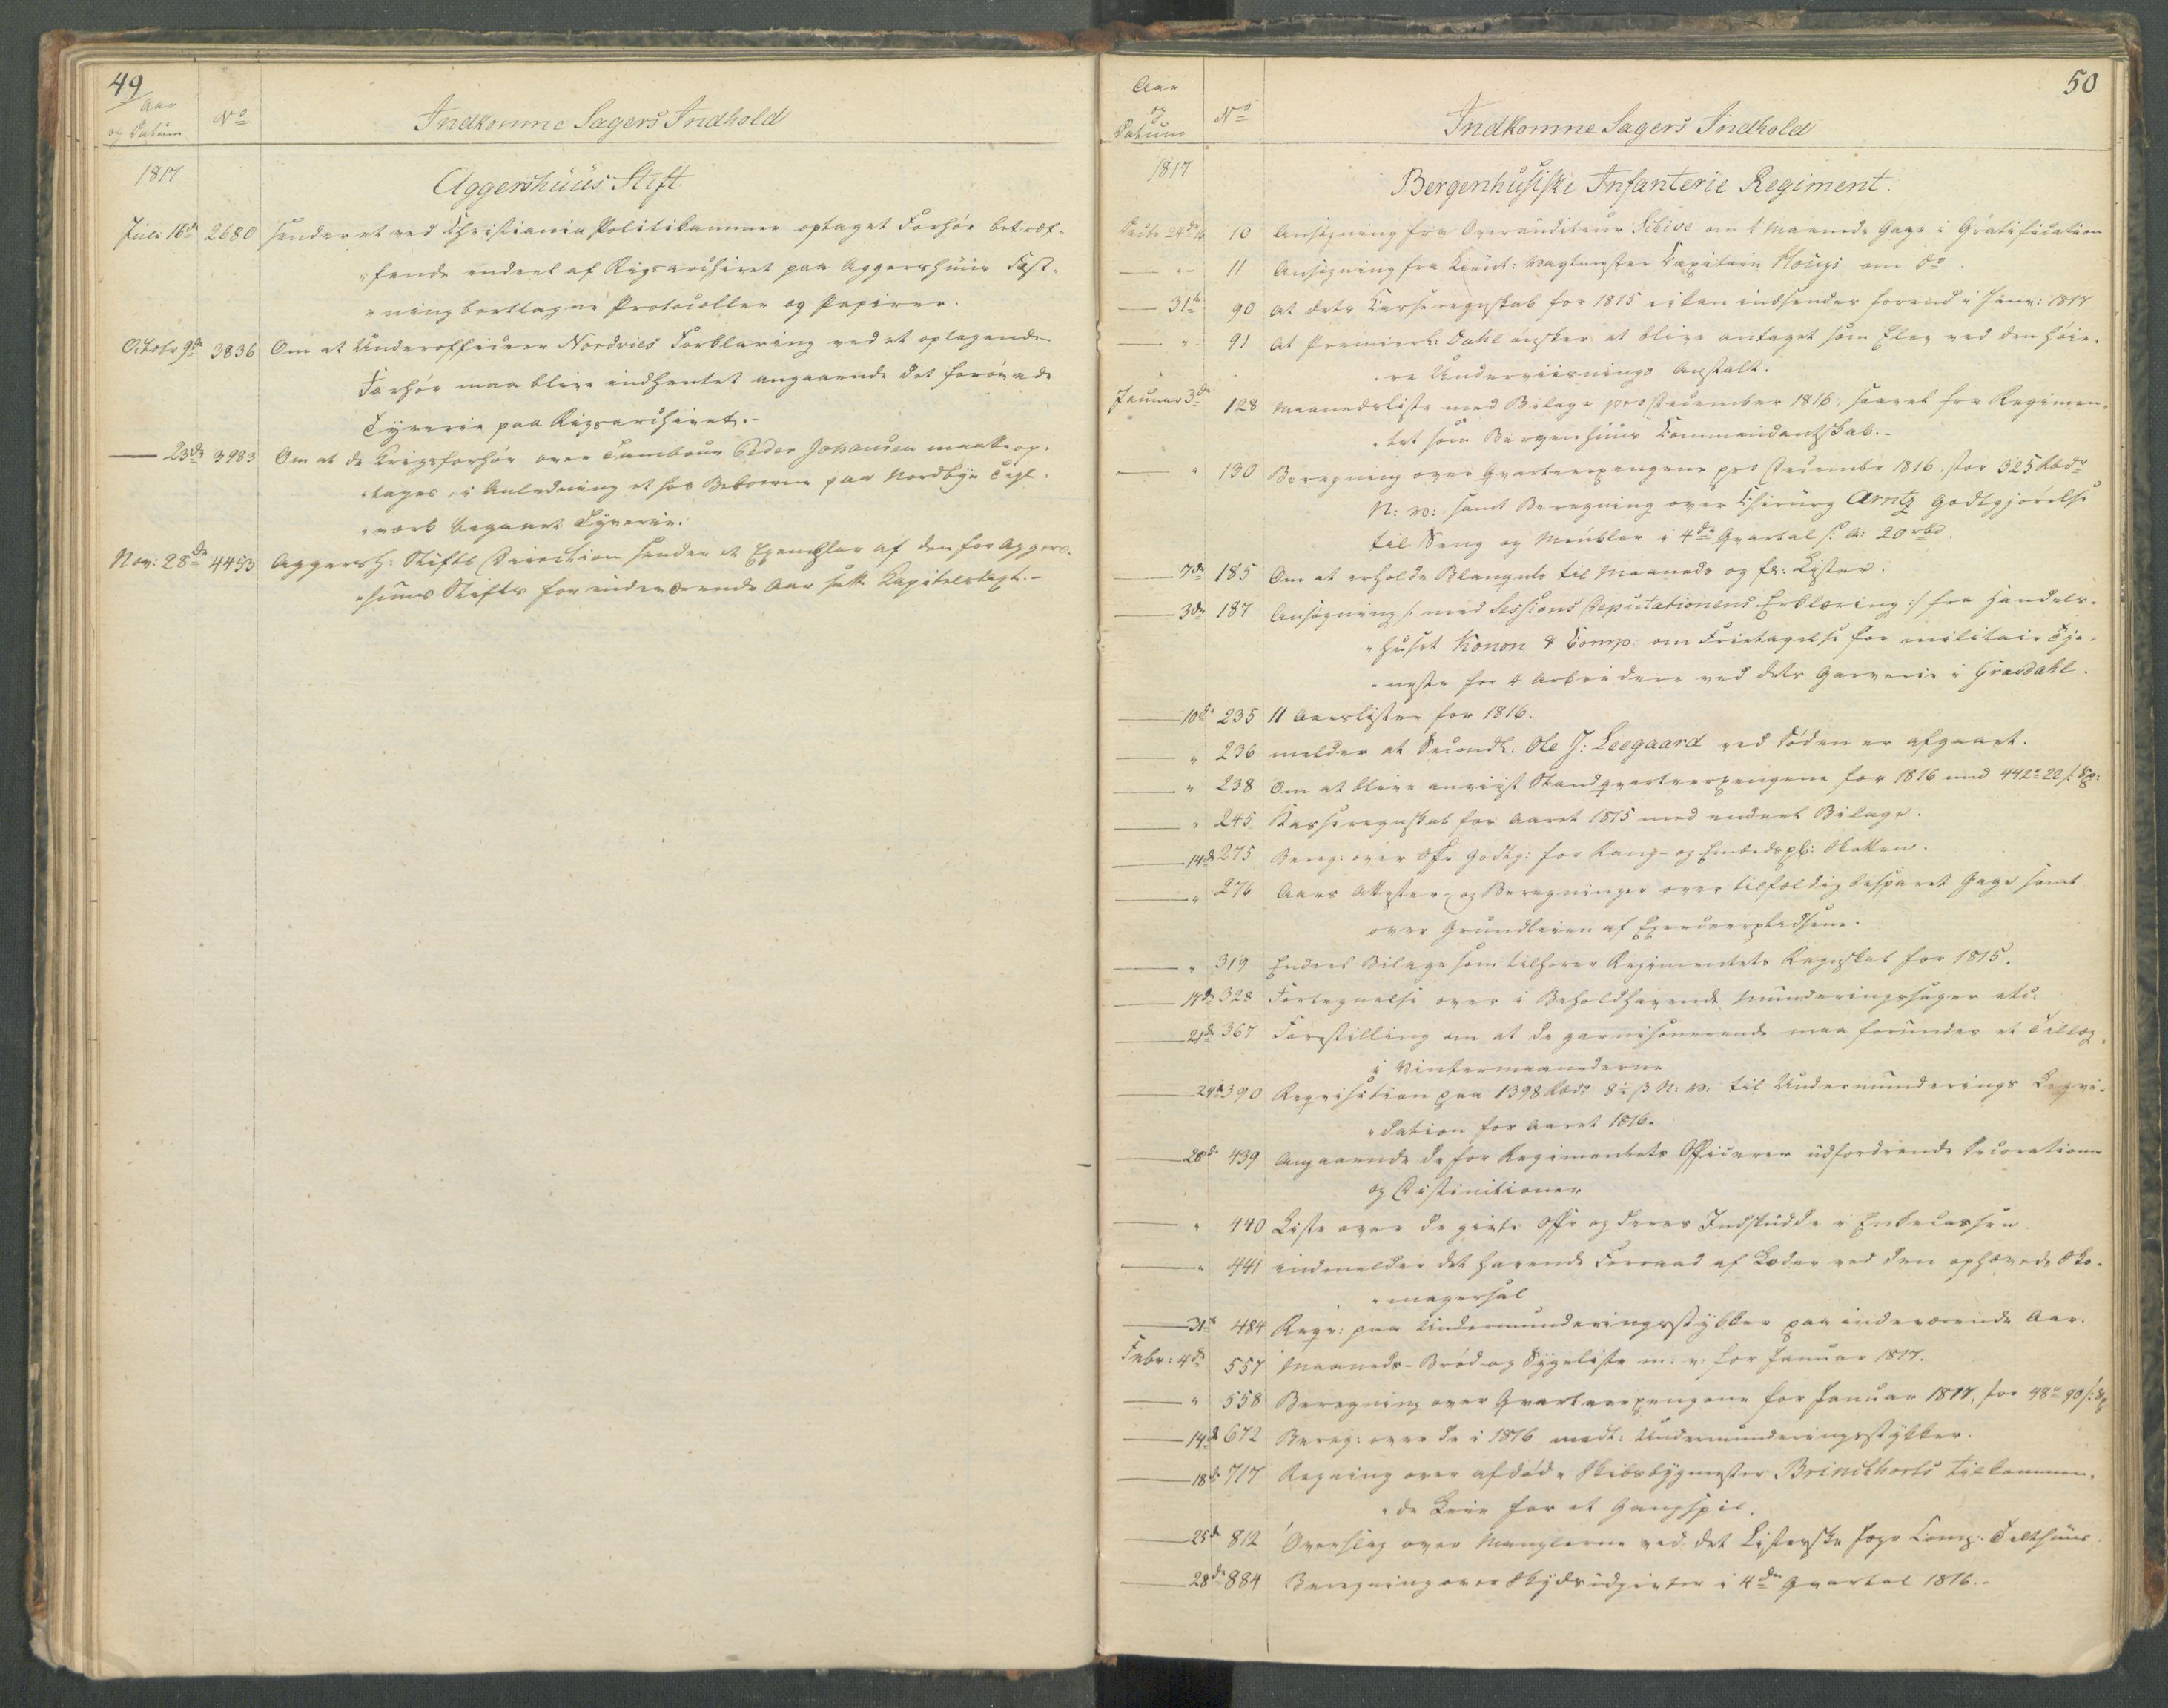 49
Aar
og Datum
No
Indkomne Sagers Indhold
1817
Aggershuus Stift
Juli 16de 2680 sender et ved Christiania Politikammer optaget Forhør betræf-
"fende endeel af Rigsarchivet paa Aggershuus Fæst-
"ning borttagne Protocoller og Papirer.
Octobr 9de 3836 Om at Underofficeer Nordvies Forklaring ved et optagende
Forhør maa blive indhentet angaaende det forøvede
Tyverie paa Rigsarchivet.-
— 23de 3983 Om at de Krigsforhør over Tambour Peder Johansen maatte op-
"tages, i Anledning et hos Beboerne paa Nordbye Tegl-
"værk begaaet Tyverie.
Nov: 28de 4453 Aggersh: Stifts Direction sender et Exemplar af den for Aggers-
"huus Stift for indeværende Aar satte Kapitelstaxt.-
50
Aar
og
Datum
No
Indkomne Sagers Indhold
1817
Bergenhusiske Infanterie Regiment.
Decbr 24de 16 10 Ansøgning fra Overauditeur Schive om 1 Maaneds Gage i Gratification
— " — 11 Ansøgning fra Capitain Hougs om Do.
— 31te 90 At dets Casseregnskab for 1815 ei kan indsendes forend i Janv: 1817
— " 91 At Premierl: Dahl ønsker at blive antaget som Elev ved den høie-
"re Underviisnings Anstalt.
Januar 3de 128 Maanedsliste med Bilage pro December 1816, saavel fra Regimen-
"tet som Bergenhuus Commendantskab.-
— " 130 Beregning over Qvarteerpengene pro Decembr 1816. stor 325 Rbdr
N: V: samt Beregning over Chirurg Arntz Godtgjørelse
til Seng og Meubler i 4de Qvartal f: A: 20 rbd.
— 7de 185 Om at erholde Blanqvets til Maaneds og Lister.
— 3de 187 Ansøgning /: med Sessions Deputationens Erklæring :/ fra Handels-
"huset Konow & Comp: om Fritagelse for militair Tje-
"neste for 4 Arbeidere ved dets Garverie i Gravdahl.
— 10de 235 11 Aarslister for 1816.
— " 236 melder at Secondl: Ole J: Leegaard ved Døden er afgaaet.
— " 238 Om at blive anviist Standqvarteerpengene for 1816 med 442 22
— " 245 Kasseregnskab for Aaret 1815 med endeel Bilage.
— 14de 275 Bereg: over Offr Godtg: for Rang- og Embedspl: Skatten.
— " 276 Aars Attester og Beregninger over tilfældig besparet Gage samt
over Grundleien af Exerceerpladsene.
— " 319 Endeel Bilage som tilhører Regimentets Regnskab for 1815.
— 17de 328 Fortegnelse over i Behold havende Munderingssager etc:
— 21de 367 Forestilling om at de garnisonerende maa forundes et Tillæg
i Vintermaanederne
— 24de 390 Reqvisition paa 1398 Rbdr 8 ß N: V: til Undermunderings Liqvi-
"dation for Aaret 1816.
— 28de 439 Angaaende de for Regimentets Officerer udfordrende Decorationer
og Distinctioner
— " 440 Liste over de givte Offr og deres Indskudde i Enkecassen
— " 441 indmelder det havende Forraad af Læder ved den ophævede Sko-
"magersal
— 31te 484 Reqv: paa Undermunderingsstykker paa indeværende Aar.
Febr: 4de 557 Maaneds- Brød og Sygeliste m: v: for Januar 1817.
— " 558 Beregning over Qvarteerpengene for Januar 1817, for 48 90
— 14de 672 Bereg: over de i 1816 modt: Undermunderingsstykker.
— 18de 717 Regning over afdøde Skibsbygmester Brinchhorts tilkommen-
"de Leie for et Gangspil.
— 25de 812 Overslag over Manglerne ved det Listerske Jæger Comp: Telthuus.
— 28de 884 Beregning over Skydsudgivter i 4de Qvartal 1816.-